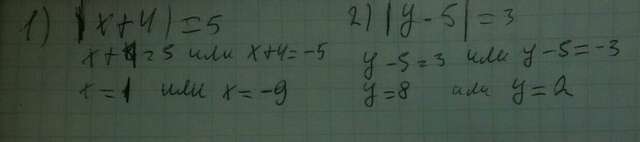 1) |x+4|=5
x+4=5 или x+4=-5
x=1 или x=-9
2) |y-5|=3
y-5=3 или y-5=-3
y=8 или y=2